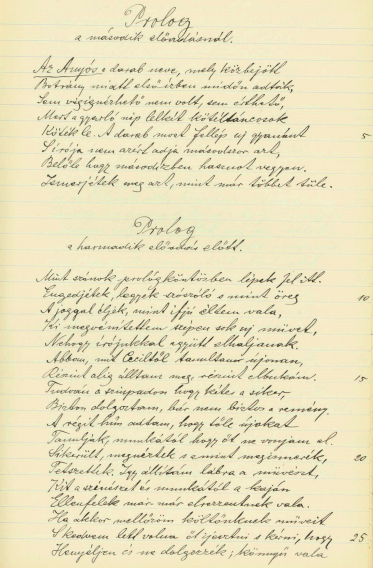 Prolog
a második előadásnál.
Az Anyós a darab neve, mely közbejött
Botrány miatt első ízben midőn adták,
Sem végignézhető nem volt, sem érthető,
Mert a gyarló nép lelkét kötéltáncosok
Köték le. A darab most fellép új gyanánt 5
S írója nem azért adja másodszor azt,
Belőle hogy másodízben hasznot vegyen.
Ismerjétek meg azt, mint már többet tőle.
Prolog
a harmadik előadás előtt.
Mint szónok, prológköntösben lépek fel itt.
Engedjétek, legyek szószóló s mint öreg 10
A joggal éljek, mint ifjú éltem vala,
Ki megvénítettem szépen sok új művet,
Nehogy írójukkal együtt elhaljanak.
Abban, mit Ceciltől tanultam újonan,
Részint alig álltam meg, részint elbukám. 15
Tudván a színpadon hogy kétes a siker,
Bizton dolgoztam, bár nem biztos a remény.
A régit hűn adtam, hogy tőle újakat
Tanuljak, munkától hogy őt ne vonjam el.
Sikerült, megnézték s mint megismerék, 20
Tetszettek. Így állítám lábra a művészt,
Kit a színészet és munkától a kaján
Ellenfelek már már elrezzentnek vala.
Ha akkor mellőzöm költőnknek műveit
S kedvem lett volna őt ijeszteni s kérni, hogy 25
Henyéljen és ne dolgozzék; könnyű vala